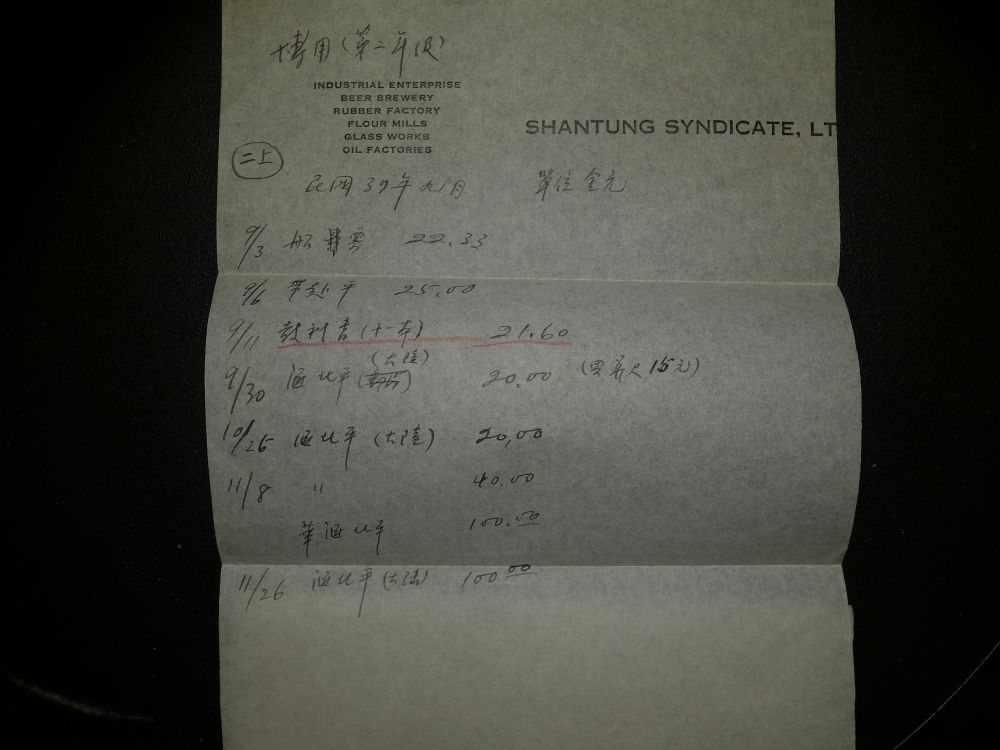 博用(第二年級)
INDUSTRIAL ENTERPRISE
BEER BREWERY
RUBBER FACTORY
FLOUR MILLS
GLASS WORKS
OIL FACTORIES
SHANTUNG SYNDICATE, LT
二上
民国37年九月 單位金元
9/3 船票 22.33
9/6 帶赴平 25.00
9/11 教科書(十一本) 21.60
(大陸)
9/30 滙北平 20.00 (15元)
10/26 滙北平(大陸) 20,00
11/8 〃 40.00
華滙北平 100.00
11/26 滙北平(大陸) 100 00